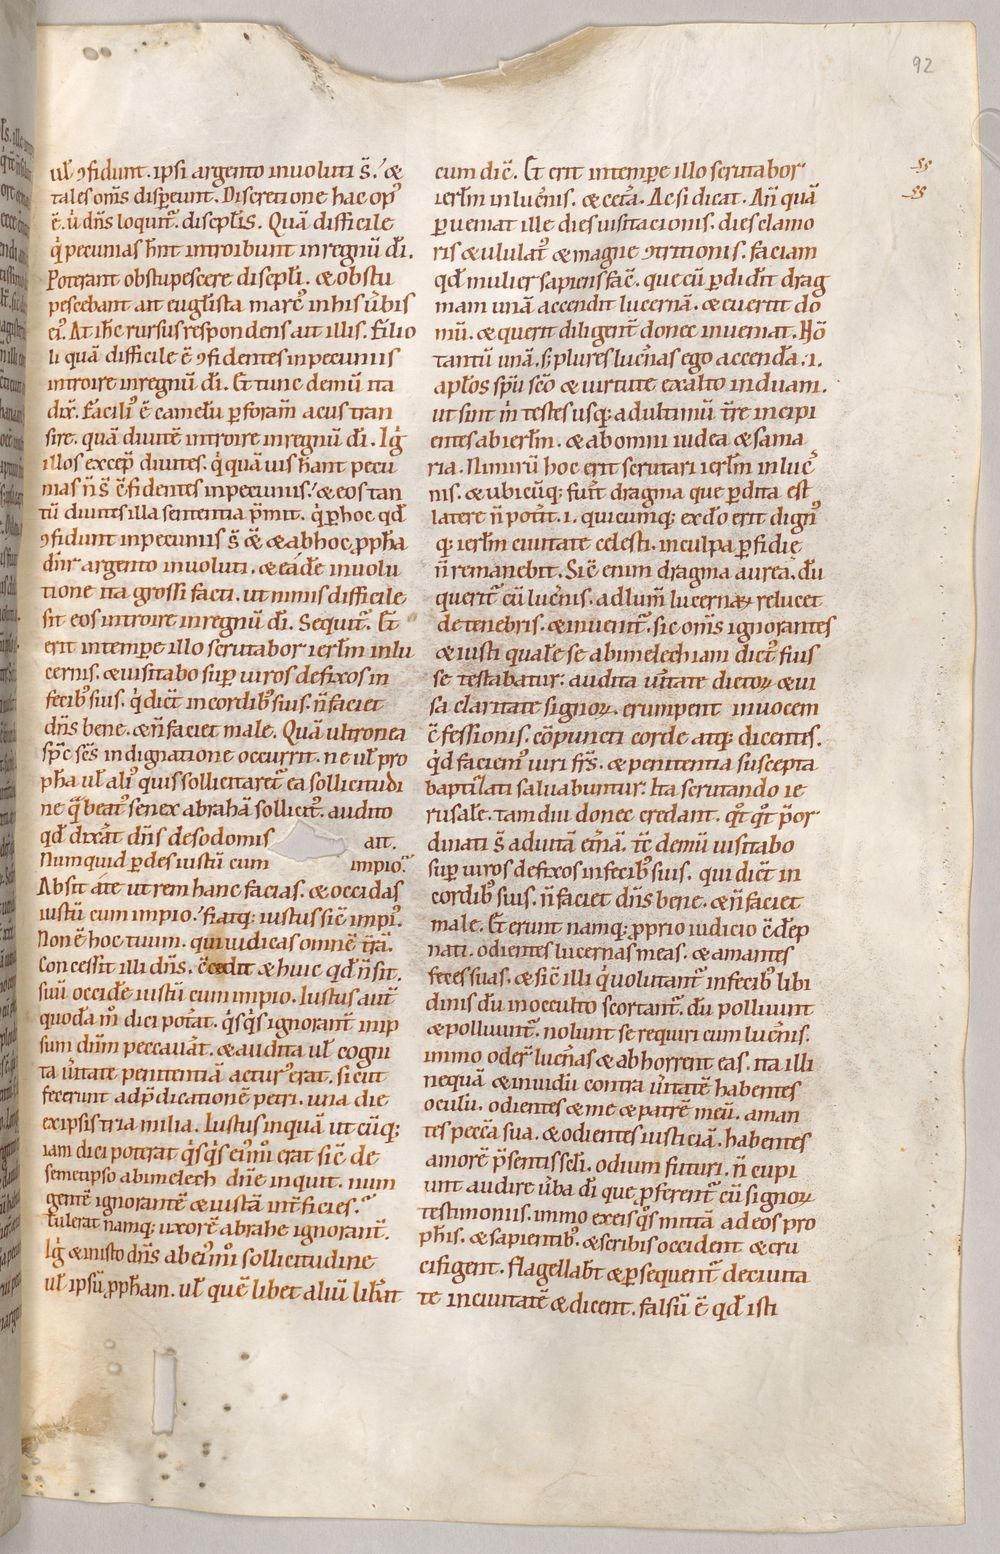 92
ul̃ ꝯfidunt. ipsi argento inuoluti s̃.' &
tales om̃s disp̃eunt. Discretione hac op᷒
ẽ. ů dñs loquit̃. discipl̃is. Quã difficile
q̇ pecunias hñt introibunt in regnũ dĩ.
Poterant obstupescere discipl̃i. & obstu
pescebant ait eugl̃ista marc᷒ in his ũbis
ei᷒. At ih̃c rursus respondens ait illis. Filio
li quã difficile ẽ ꝯfidentes in pecuniis
introire in regnũ dĩ. Et tunc demũ ita
dix̃. Facili᷒ ẽ camelũ ꝑ foram̃ acus tran
sire. quã diuitẽ introire in regnũ dĩ. Ig̃
illos excep̃ diuites. q̇ quãuis h̃ant pecu
nias ñ s̃ ꝯfidentes in pecuniis.' & eos tan
tũ diuites illa sententia p̃mit. q̇ ꝑ hoc qd̃
ꝯfidunt in pecuniis s̃ & & ab hoc ꝓph̃a
dñr argento inuoluti. & eãdẽ inuolu
tione ita grossi facti. ut nimis difficile
sit eos introire in regnũ dĩ. Sequit̃. Et
erit in tempe illo scrutabor ierl̃m in lu
cernis. & uisitabo sup uiros defixos in
fecib᷒ suis. q̇ dic̃t in cordib᷒ suis. ñ faciet
dñs bene. & ñ faciet male. Quã ultronea
sp̃c sc̃s indignatione occurrit. ne ul̃ pro
ph̃a ul̃ ali᷒ quis sollicitaret̃ ea sollicitudi
ne q̃ beat᷒ senex abrahã sollicit̃. audito
qd̃ dixãt dñs de sodomis ait.
Numquid ꝑdes iustũ cum impio.
Absit a te ut rem hanc facias. & occidas
iustũ cum impio.' fiatq; iustus sic̃ impi᷒.
Non ẽ hoc tuum. qui iudicas omnẽ t̃rã.
Concessit illi dñs. c̃cedit & huic qd̃ ñ sit.
suũ occidẽ iustũ cum impio. Iustus aut̃
quodã m̊ dici pot̃at. q̇sq̇s ignorant̃ in ip
sum dñm peccauãt. & audita ul̃ cogni
ta ũitate penitentiã actur᷒ erat. sicut
fecerunt ad p̃dicationẽ petri. una die
ex ipsis tria milia. Iustus inquã utcũq;
iam dici poterat q̇sq̇s ei᷒m̊i erat sic̃ de
semetipso abimelech dñe inquit. num
gentẽ ignorantẽ & iustã int̃ficies.'
Tulerat namq; uxorẽ abrahe ignorant̃.
Ig̃ & in isto dñs ab ei᷒m̊i sollicitudine
ul̃ ipsũ ꝓpham. ul̃ quẽlibet aliũ lib̃nt
cum dic̃. Et erit in tempe illo scrutabor
ierl̃m in luc̃nis. & cet̃a. Ac si dicat. Añ quã
ꝑueniat ille dies uisitacionis. dies clamo
ris & ululat᷒ & magne ꝯtritionis. faciam
qd̃ mulier sapiens fac̃. que cũ ꝑdidit drag
mam unã accendit lucernã. & euertit do
mũ. & querit diligent̃ donec inueniat. Nõ
tantũ unã. s; plures luc̃nas ego accendã .i.
apl̃os spũ sc̃o & uirtute ex alto induam.
ut sint m̃ testes usq; ad ultimũ t̃re incipi
entes ab ierl̃m. & ab omni iudea & sama
ria. Nimirũ hoc erit scrutari ierl̃m in luc̃
nis. & ubicũq; fuit̃ dragma que ꝑdita est
latere ñ pot̃it .i. quicumq; ex dõ erit dign᷒
q; ierl̃m ciuitate celesti. in culpa ꝑfidie
ñ remanebit. Sic̃ enim dragma aurea. dũ
querit̃ cũ luc̃nis. ad lum̃ lucernaꝝ relucet
de tenebris. & inuenit̃. sic om̃s ignorantes
& iusti quale se abimelech iam dict᷒ fuis
se testabatur: audita ũitate dictoꝝ & ui
sa claritate signoꝝ. erumpent in uocem
c̃fessionis. cõpuncti corde atq; dicentes.
q̇d faciem᷒ uiri fr̃s. & penitentia suscepta
baptizati saluabuntur. Ita scrutando ie
rusalẽ. tam diu donec credant. q̃t q̃t p̃or
dinati s̃ ad uitã et̃nã. tc̃ demũ uisitabo
sup uiros defixos in fecib᷒ suis. qui dic̃t in
cordib᷒ suis. ñ faciet dñs bene. & ñ faciet
male. Et erunt namq; ꝓprio iudicio c̃dẽp
nati. odientes lucernas meas. & amantes
feces suas. & sic̃ illi q̇ uolutant̃ in fecib᷒ libi
dinis dũ in occulto scortant̃. dũ polluunt
& polluunt̃. nolunt se requiri cum luc̃nis.
immo oder̃ luc̃nas & abhorrent eas. ita illi
nequã & inuidũ contra ũitatẽ habentes
oculũ. odientes & me & patrẽ meũ. aman
tes pecc̃a sua. & odientes iusticiã. habentes
amorẽ p̃sentis scl̃i. odium futuri. ñ cupi
unt audire ũba dĩ que ꝓferent̃ cũ signoꝝ
testimoniis. immo ex eis q̊s mittã ad eos pro
ph̃is. & sapientib᷒. & scribis occident & cru
cifigent. flagellab̃t & ꝑsequent̃ de ciuita
te in ciuitatẽ & dicent. falsũ ẽ qd̃ isti